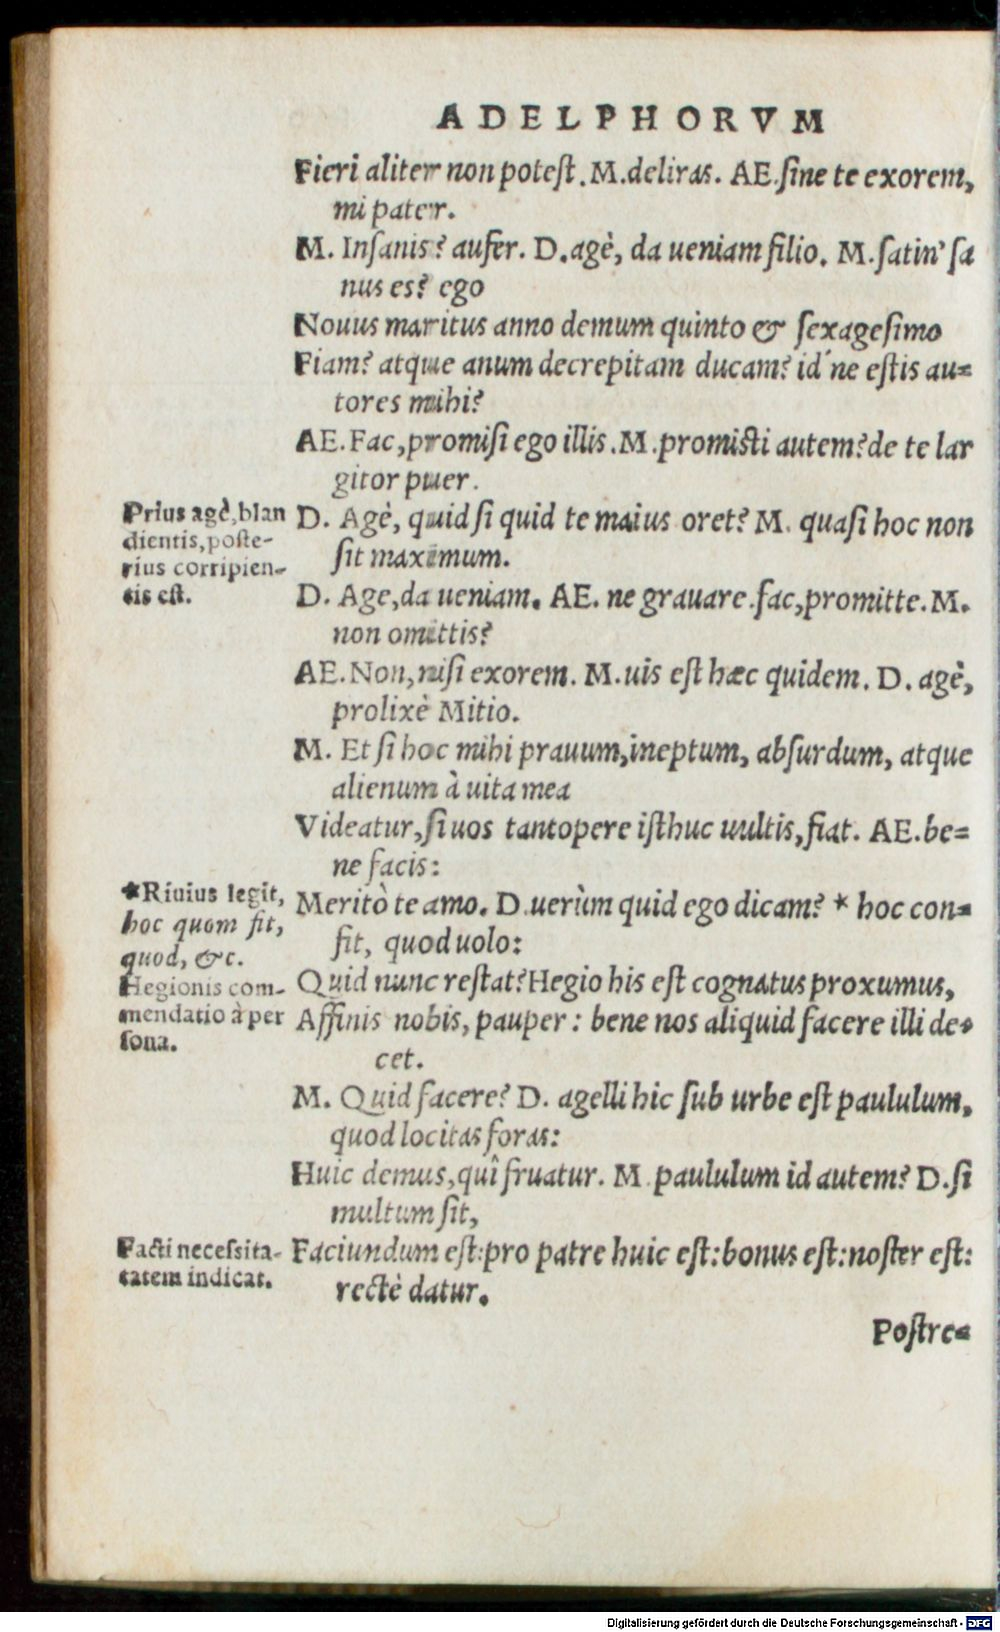 ADELPHORVM
Fieri aliter non poteſt. M. deliras. AE. ſine te exorem,
mi pater.
M. Inſanis? aufer. D. agè, da ueniam filio. M. ſatin' ſa
nus es? ego
Nouus maritus anno demum quinto & ſexageſimo
Fiam? atque anum decrepitam ducam? id´ne eſtis au=
tores mihi?
AE. Fac, promiſi ego illis. M. promiſti autem? de te lar
gitor puer.
Prius agè, blan
dientis, poſte-
rius corripien-
tis eſt.
D. Agè, quid ſi quid te maius oret? M. quaſi hoc non
ſit maximum.
D. Age, da ueniam. AE. ne grauare. fac, promitte. M.
non omittis?
AE. Non, niſi exorem. M. uis eſt hæc quidem. D. agè,
prolixè Mitio.
M. Et ſi hoc mihi prauum, ineptum, abſurdum, atque
alienum à uita mea
Videatur, ſi uos tantopere iſthuc uultis, fiat. AE. be=
ne facis:
*Riuius legit,
hoc quom fit,
quod, &c.
Meritò te amo. D. uerùm quid ego dicam? * hoc con=
fit, quod uolo:
Hegionis com-
mendatio à per
ſona.
Quid nunc reſtat? Hegio his est cognatus proxumus,
Affinis nobis, pauper: bene nos aliquid facere illi de=
cet.
M. Quid facere? D. agelli hic ſub urbe eſt paululum,
quod locitas foras:
Huic demus, quî fruatur. M. paululum id autem? D. ſi
multum ſit,
Facti neceſsita-
tatem indicat.
Faciundum eſt: pro patre huic eſt: bonus eſt: noſter eſt:
rectè datur.
Poſtre=
Digitalisierung gefördert durch die Deutsche Forschungsgemeinschaft - DFG